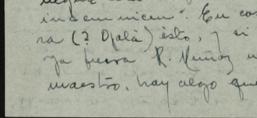 indemnicen". En ca
ra (? Ojalá) esto, y si
ya fuera R. Muñoz
maestro, hay algo que